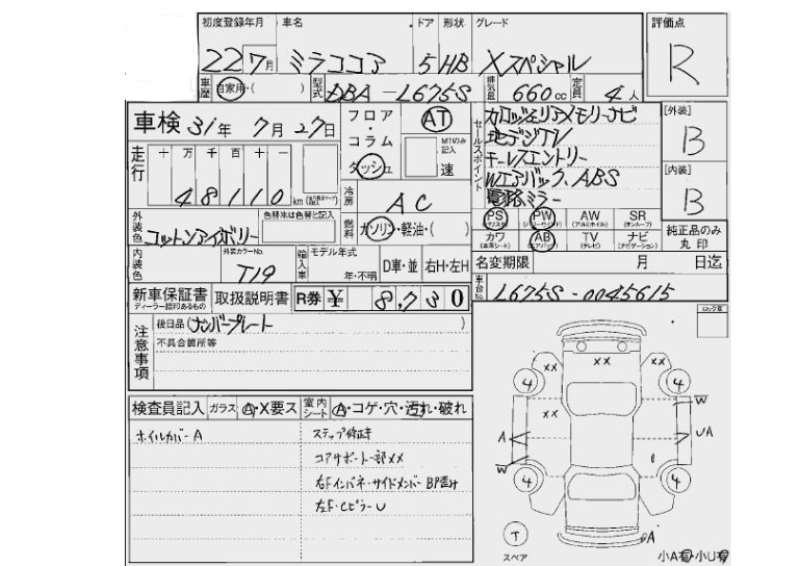 初度登録年月 車名 ドア 形状 グレード 評価点
22 7月 ミラココア 5 HB Xスペシャル R
車歴 自家用・( ) 型式 DBA-L675S 排気量 660cc 定員 4人
車検 31年 7月 27日 フロア・コラム ダッシュ AT MTのみ記入 速
セールスポイント
カロッツェリアメモリーナビ
地デジTV
キーレスエントリー
Wエアバック、ABS
電格ミラー
[外装] B
[内装] B
走行 十 万 千 百 十 一
48110 km
冷房 AC
外装色 コットンアイボリー 色替車は色替と記入 燃料 ガソリン・軽油・( )
PS PW AW (アルミホイル) SR (サンルーフ)
カワ (本革シート) AB TV (テレビ) ナビ (ナビゲーション)
純正品のみ丸印
内装色 外装カラーNo. T19 輸入車 モデル年式 年・不明 D車・並 右H・左H
名変期限 月 日迄
新車保証書 ディーラー捺印あるもの 取扱説明書 R券 ¥ 8,730
車台No. L675S-0045615
注意事項 後日品 (ナンバープレート )
不具合箇所等
検査員記入 ガラス A・X要ス 室内シート A・コゲ・穴・汚れ・破れ
ホイルカバーA
ステップ修正キ
コアサポート一部XX
右Fインパネ・サイドメンバーBP歪み
左F・CピラーU
XX XX XX
4 4
XX
W
A UA
W
4 4
T スペア
A
小A有・小U有